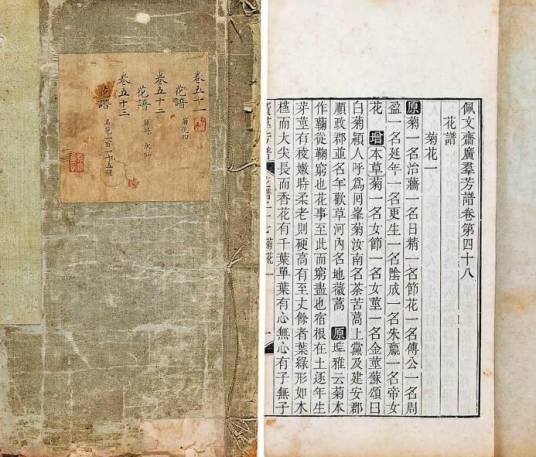 卷五十一
花譜
卷五十二
花譜
卷五十三
花譜
佩文齋廣羣芳譜卷第四十八
花譜
菊花一
原菊一名治蘠一名日精一名節花一名傅公一名周
盈一名延年一名更生一名陰成一名朱嬴一名帝女
花 增本草菊一名女節一名女莖一名金蕋蘇頌曰
白菊潁人呼爲囘峯菊汝南名茶苦蒿上黨及建安郡
順政郡並名年歡草河內名地薇蒿 原埤雅云菊本
作蘜從鞠窮也花事至此而窮盡也宿根在土逐年生
芽莖有稜嫩時柔老則硬高有至丈餘者葉綠形如木
槿而大尖長而香花有千葉單葉有心無心有子無子
菊花一